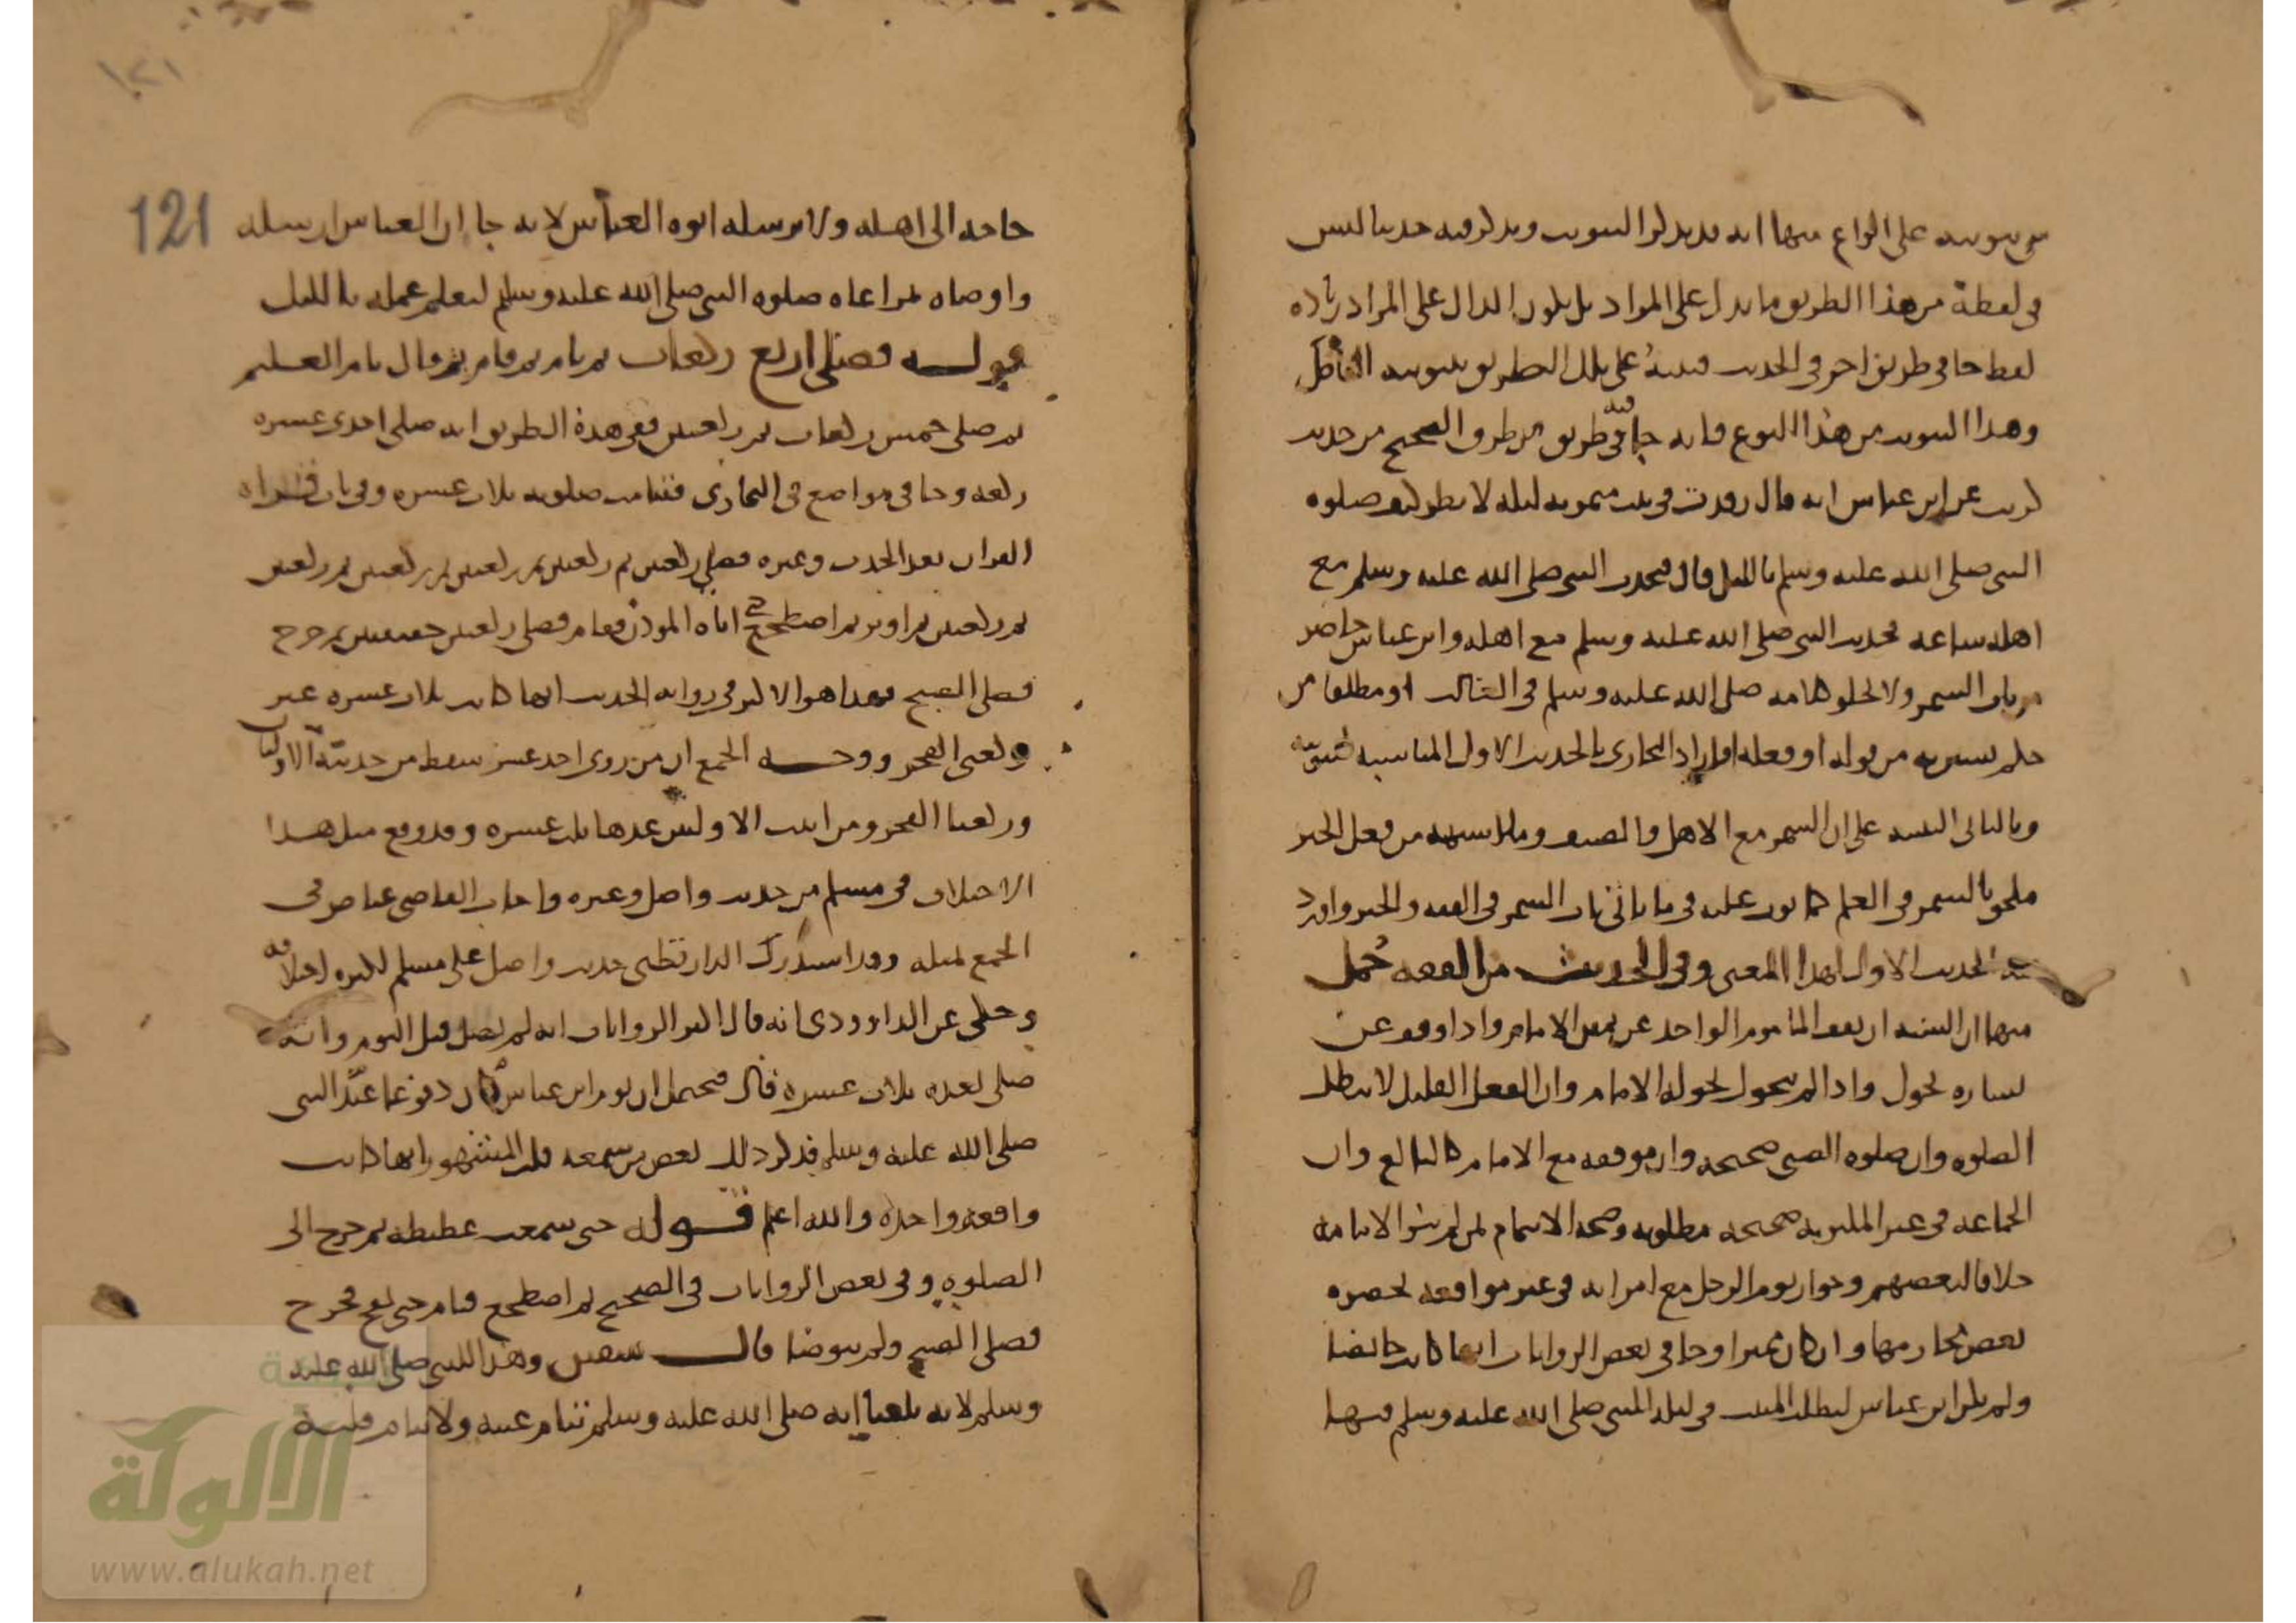 في تبويبه على انواع منها انه قد يذكر التبويب ويذكر فيه حديثا ليس
في لفظة من هذا الطريق ما يدل على المراد بل يكون الدال على المراد زيادة
لفظ جا في طريق اخر في الحديث فينبه على تلك الطريق بتبويبه الناظر
وهذا التبويب من هذا النوع فانه جا فيه في طريق من طرق الصحيح من حديث
كريب عن ابن عباس انه قال رقدت في بيت ميمونه ليله لانظر كيف صلوه
النبي صلى الله عليه وسلم بالليل قال فتحدث النبي صلى الله عليه وسلم مع
اهله ساعه فحديث النبي صلى الله عليه وسلم مع اهله وابن عباس حاضر
من باب السمر ولا تخلو كلمه صلى الله عليه وسلم في الغالب او مطلقا من
حكم يستفيده من قوله او فعله افاراد البخاري بالحديث الاول المناسبه
وبالثاني التنبيه على ان السمر مع الاهل والضيف وما اشبهه من فعل الخير
ملحق بالسمر في العلم كما بوب عليه في ما ياتي باب السمر في الفقه والخير واورد
فيه الحديث الاول لهذا المعنى وفي الحديث من الفقه جمل
منها ان السنه ان يقف الماموم الواحد عن يمين الامام واذا وقف عن
يساره تحول واذا لم يتحول تحوله الامام وان الفعل القليل لا يبطل
الصلوه وان صلوه الصبي صحيحه وان موقفه مع الامام كالبالغ وان
الجماعه في غير المكتوبه صحيحه مطلوبه وصحه الايتمام لمن لم ينو الامامه
خلافا لبعضهم وجواز نوم الرجل مع امراته في غير مواقعه بحضره
بعض محارمها وان كان مميزا وجا في بعض الروايات انها كانت حايضا
ولم يكن ابن عباس ليطلب المبيت في ليله للنبي صلى الله عليه وسلم فيها
١٢١
121
حاجه الى اهله ولا يرسله ابوه العباس لانه جا ان العباس ارسله
واوصاه بمراعاه صلوه النبي صلى الله عليه وسلم ليعلم عمله بالليل
قوله فصلى اربع ركعات ثم نام ثم قام ثم قال نام الغليم
ثم صلى خمس ركعات ثم ركعتين ففي هذه الطريق انه صلى احدى عشره
ركعه وجا في مواضع في البخاري فتتامت صلوته ثلاث عشره وفي باب قراه
القران بعد الحدث وغيره فصلى ركعتين ثم ركعتين ثم ركعتين ثم ركعتين ثم ركعتين
ثم ركعتين ثم اوتر ثم اضطجع حتى اتاه الموذن فقام فصلى ركعتين خفيفتين ثم خرج
فصلى الصبح فهذا هو الاكثر في روايه الحديث انها كانت ثلاث عشره غير
ركعتي الفجر ووجه الجمع ان من روى احد عشر سقط من حديثه الاوليان
وركعتا الفجر ومن اثبت الاولتين عدها ثلث عشره وقد وقع مثل هذا
الاختلاف في مسلم من حديث واصل وغيره واجاب القاضي عياض في
الجمع بمثله وقد استدرك الدارقطني حديث واصل على مسلم لكثره اختلافه
وحكى عن الداوودي انه قال اكثر الروايات انه لم يصل قبل النوم وانه
صلى بعده ثلاث عشره قال فيحتمل ان نوم ابن عباس كان دفوعا عند النبي
صلى الله عليه وسلم فذكر ذلك بعض من سمعه قلت المشهور انها كانت
واقعه واحده والله اعلم قوله حتى سمعت غطيطه ثم خرج الى
الصلوه وفي بعض الروايات في الصحيح ثم اضطجع فنام حتى نفخ فخرج
فصلى الصبح ولم يتوضا قال سفين وهذا للنبي صلى الله عليه
وسلم لانه بلغنا انه صلى الله عليه وسلم تنام عينه ولا ينام قلبه
الألوكة
www.alukah.net